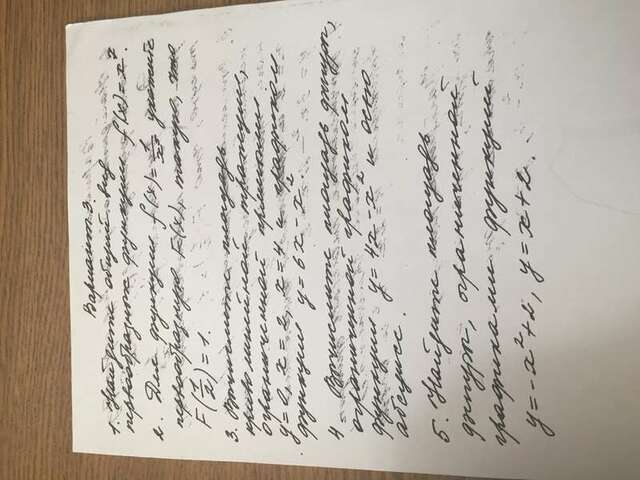 Вариант 3.
1. Найдите общий вид
первообразных функции f(x)=x⁷.
2. Для функции f(x)=1/x² укажите
первообразную F(x), такую, что
F(1/2)=1.
3. Вычислите площадь
криволинейной трапеции,
ограниченной прямыми
y=0, x=2, x=4 и графиком
функции y=6x-x².
4 Вычислите площадь фигуры,
ограниченной графиком
функции y=4x-x² и осью
абсцисс.
5. Найдите площадь
фигуры, ограниченной
графиками функций
y=-x²+2, y=x+2.